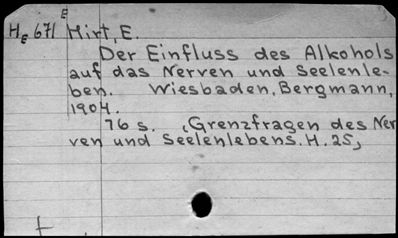 E
HE 671 Hirt, E.
Der Einfluss des Alkohols
auf das Nerven und Seelenle-
ben. Wiesbaden, Bergmann,
1904.
76 s. (Grenzfragen des Ner
ven und Seelenlebens. H. 25)